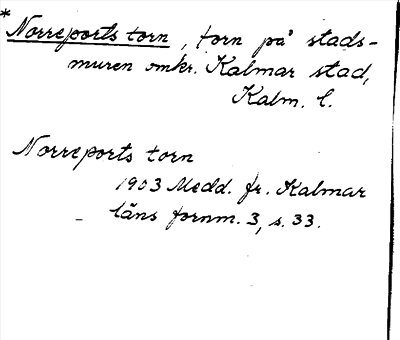 *Norreports torn, torn på stads-
muren omkr. Kalmar stad,
Kalm. l.
Norreports torn
1903 Medd. fr. Kalmar
läns fornm. 3, s. 33.